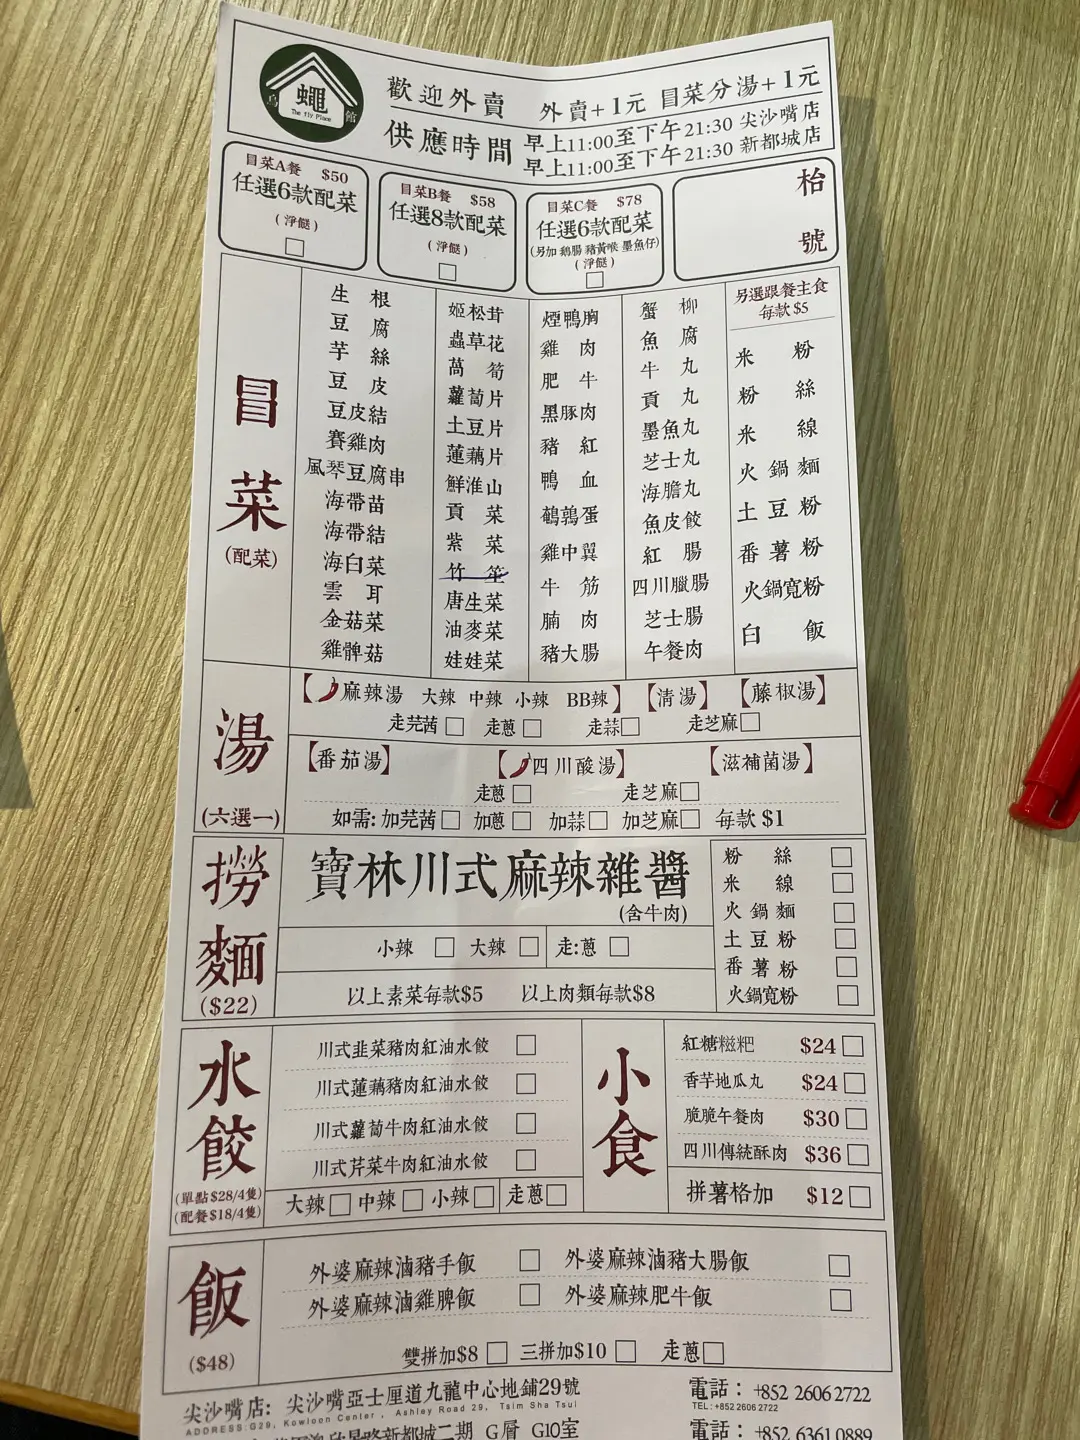 烏 蠅 館
The fly Place
歡迎外賣 外賣+1元 冒菜分湯+1元
供應時間 早上11:00至下午21:30 尖沙嘴店
早上11:00至下午21:30 新都城店
冒菜A餐 $50
任選6款配菜
(淨餸)
冒菜B餐 $58
任選8款配菜
(淨餸)
冒菜C餐 $78
任選6款配菜
(另加 鵝腸 豬黃喉 墨魚仔)
(淨餸)
枱
號
冒菜
(配菜)
生根
豆腐
芋絲
豆皮
豆皮結
賽雞肉
風琴豆腐串
海帶苗
海帶結
海白菜
雲耳
金菇菜
雞髀菇
姬松茸
蟲草花
萵筍
蘿蔔片
土豆片
蓮藕片
鮮淮山
貢菜
紫菜
竹笙
唐生菜
油麥菜
娃娃菜
煙鴨胸
雞肉
肥牛
黑豚肉
豬紅
鴨血
鵪鶉蛋
雞中翼
牛筋
腩肉
豬大腸
蟹柳
魚腐
牛丸
貢丸
墨魚丸
芝士丸
海膽丸
魚皮餃
紅腸
四川臘腸
芝士腸
午餐肉
另選跟餐主食
每款$5
米粉
粉絲
米線
火鍋麵
土豆粉
番薯粉
火鍋寬粉
白飯
湯
(六選一)
【麻辣湯 大辣 中辣 小辣 BB辣】【清湯】【藤椒湯】
走芫茜 走蔥 走蒜 走芝麻
【番茄湯】 【四川酸湯】 【滋補菌湯】
走蔥 走芝麻
如需: 加芫茜 加蔥 加蒜 加芝麻 每款 $1
撈麵
($22)
寶林川式麻辣雜醬
(含牛肉)
小辣 大辣 走:蔥
以上素菜每款$5 以上肉類每款$8
粉絲
米線
火鍋麵
土豆粉
番薯粉
火鍋寬粉
水餃
(單點$28/4隻)
(配餐$18/4隻)
川式韭菜豬肉紅油水餃
川式蓮藕豬肉紅油水餃
川式蘿蔔牛肉紅油水餃
川式芹菜牛肉紅油水餃
大辣 中辣 小辣 走蔥
小食
紅糖糍粑 $24
香芋地瓜丸 $24
脆脆午餐肉 $30
四川傳統酥肉 $36
拼薯格加 $12
飯
($48)
外婆麻辣滷豬手飯 外婆麻辣滷豬大腸飯
外婆麻辣滷雞脾飯 外婆麻辣肥牛飯
雙拼加$8 三拼加$10 走蔥
尖沙嘴店: 尖沙嘴亞士厘道九龍中心地鋪29號 電話: +852 2606 2722
ADDRESS:G29, Kowloon Center, Ashley Road 29, Tsim Sha Tsui TEL:+852 2606 2722
新都城二期 G層 G10室 電話: +852 6361 0889